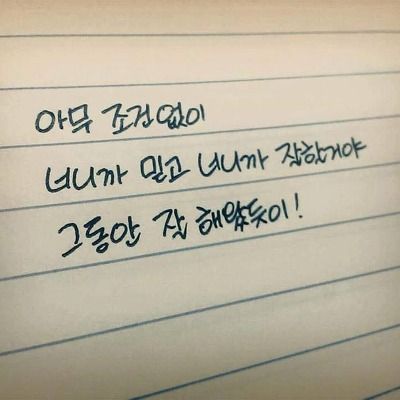 아무 조건없이
너니까 믿고 너니까 잘한거야
그동안 잘 해왔듯이!